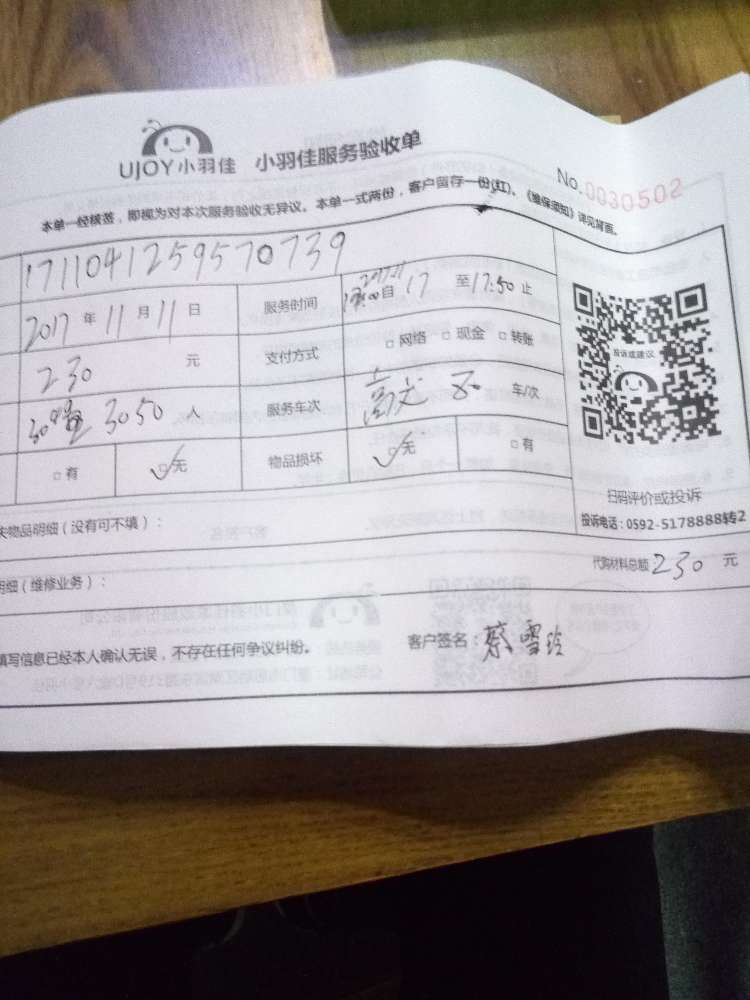 UJOY小羽佳 小羽佳服务验收单
No.0030502
本单一经核签，即视为对本次服务验收无异议。本单一式两份，客户留存一份(红)。《维保须知》详见背面。
1711041259570739
2017 年 11 月 11 日 服务时间 自 17 至 17:50 止
230 元 支付方式 □网络 □现金 □转账
3050 人 服务车次 车/次
□有 ✓□无 物品损坏 ✓□无 □有
投诉或建议
扫码评价或投诉
投诉电话：0592-5178888转2
失物品明细（没有可不填）：
明细（维修业务）：
代购材料总额 230 元
填写信息已经本人确认无误，不存在任何争议纠纷。 客户签名：蔡雪玲